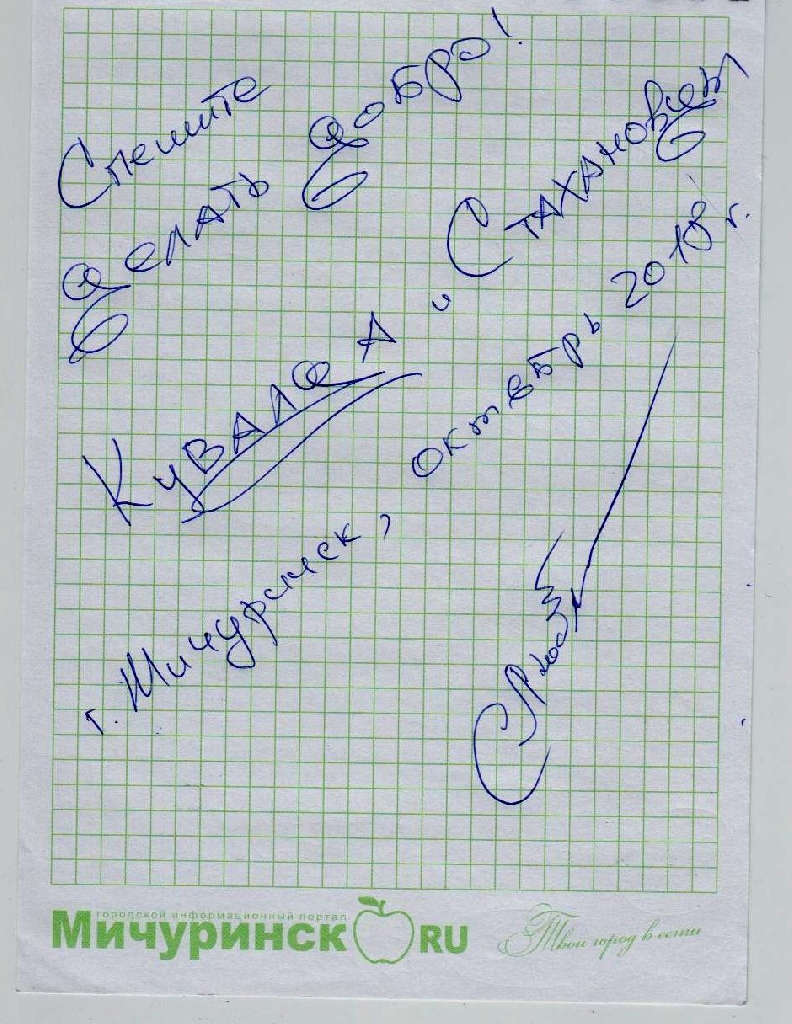 Спешите
делать добро!
Кувалда и Стахановец
г. Мичуринск, октябрь 2018 г.
городской информационный портал
Мичуринск RU
Твой город в сети